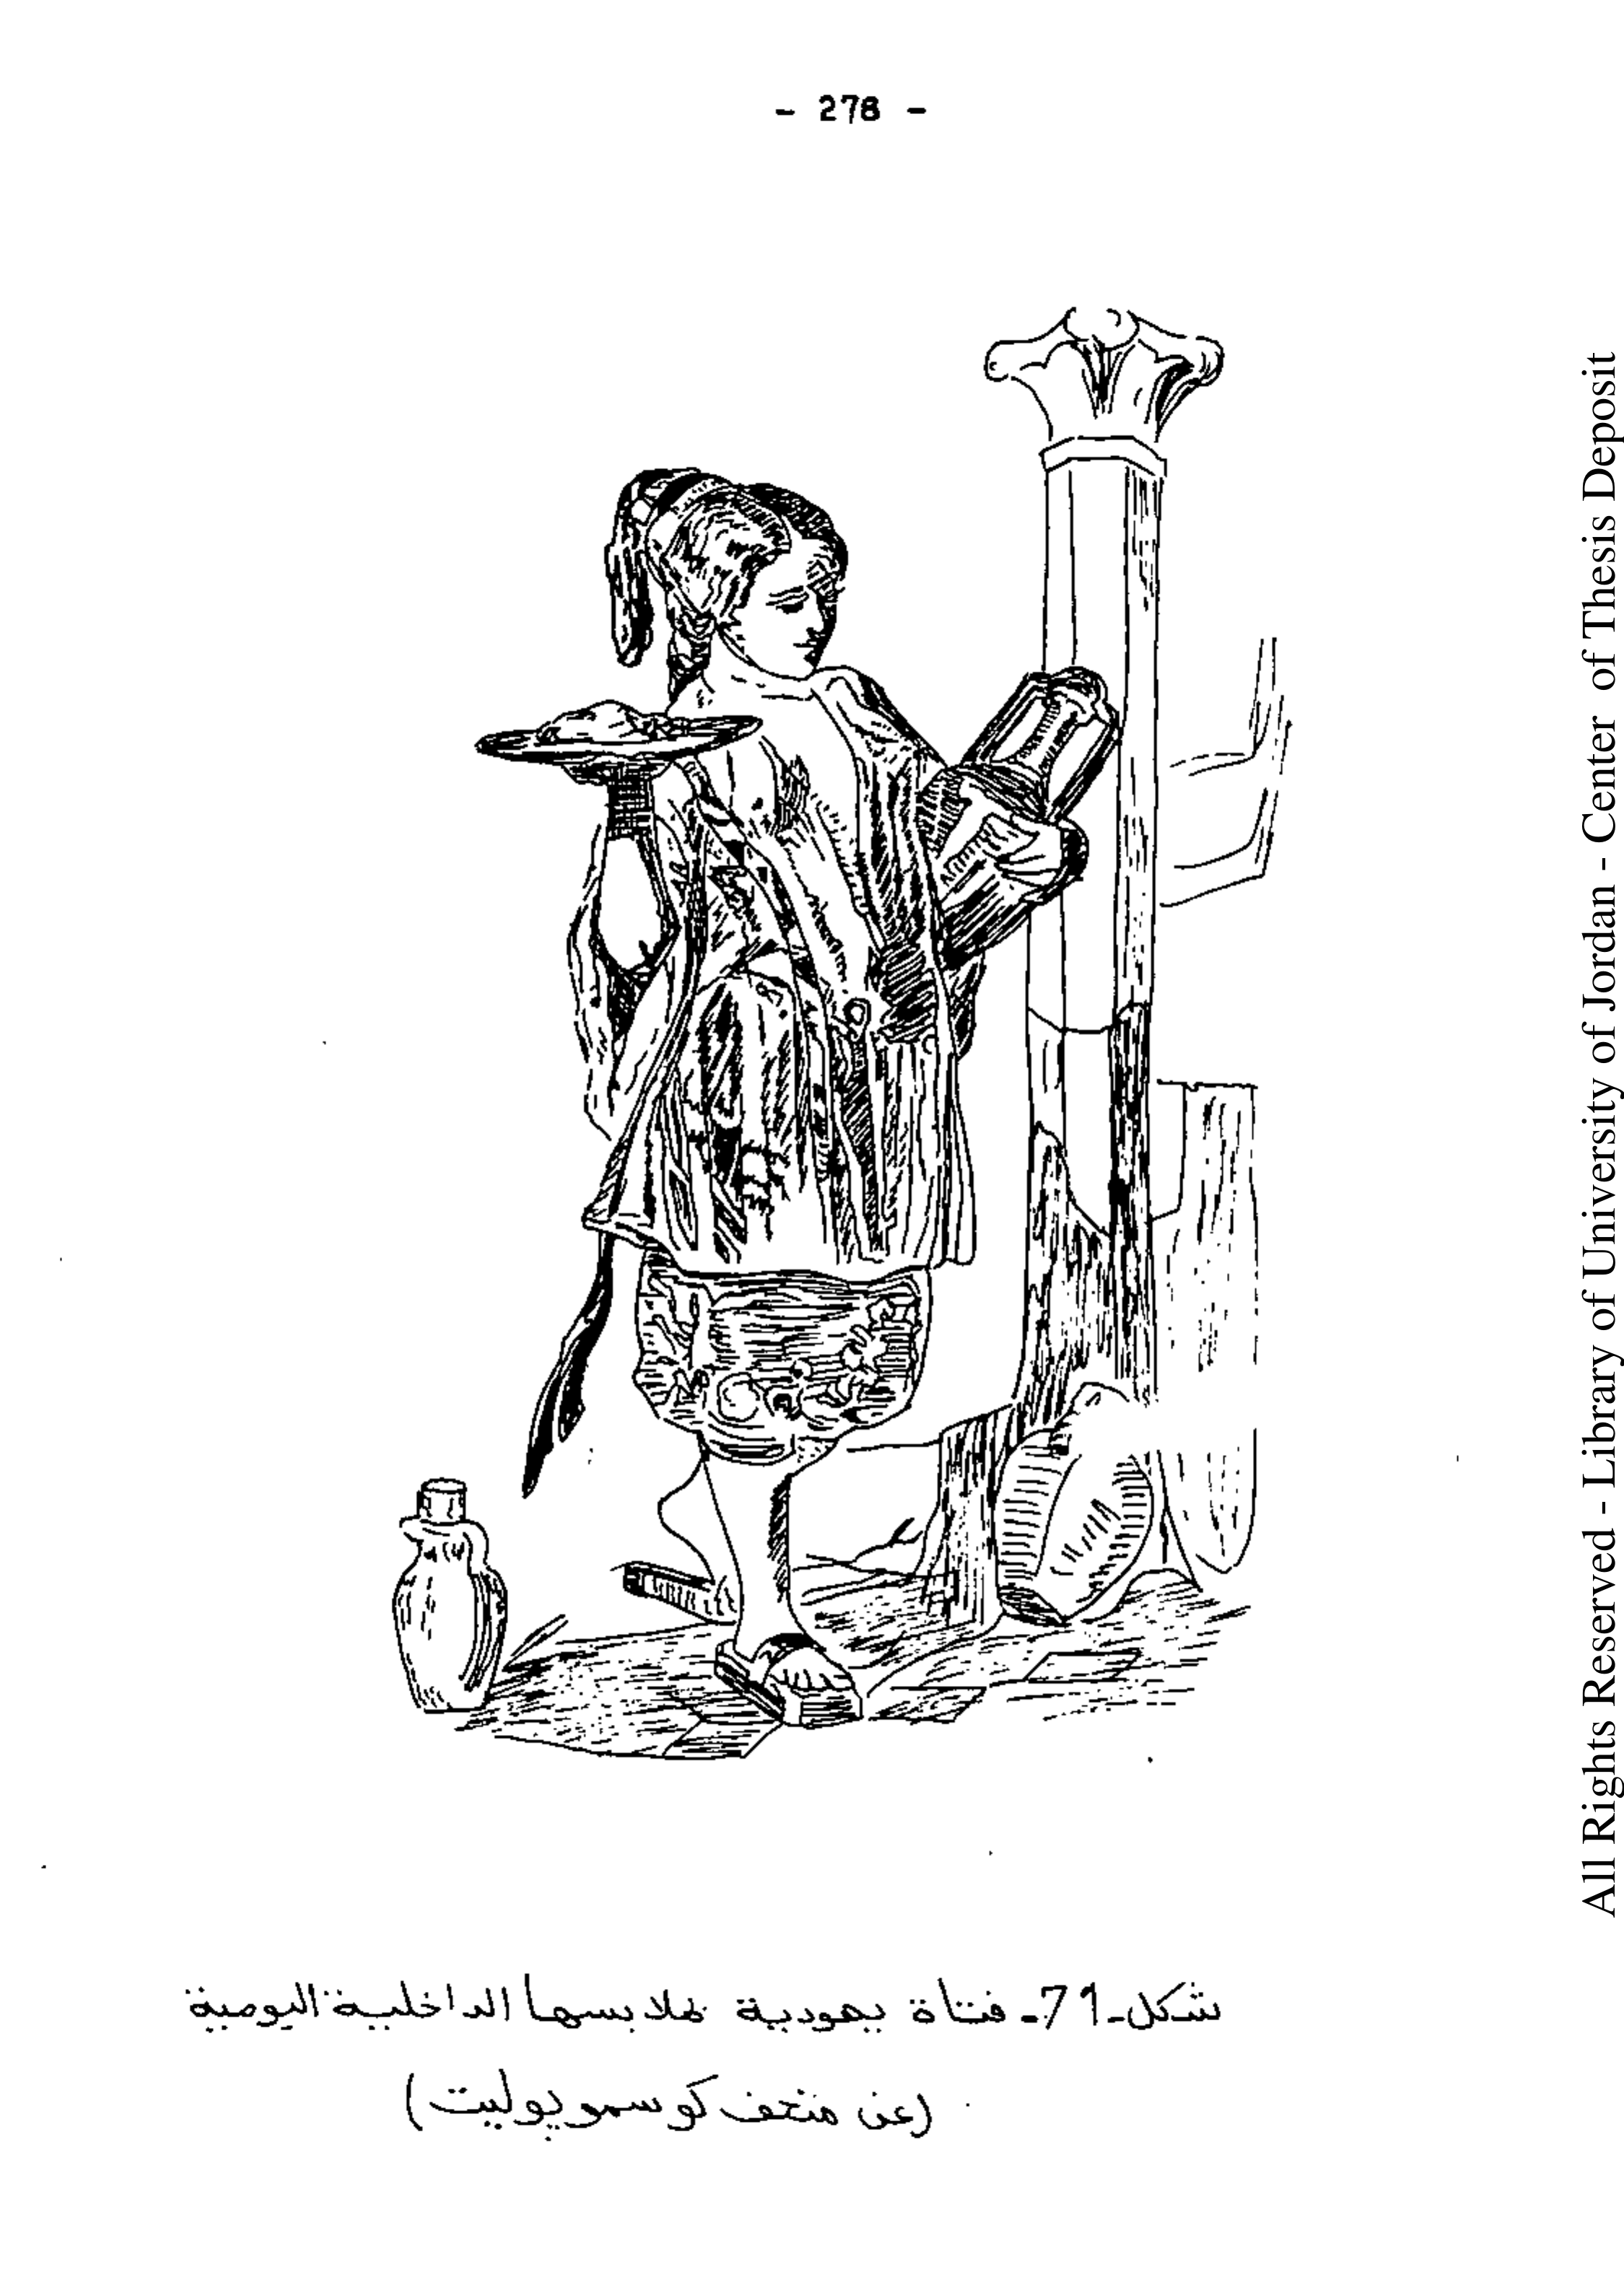 - 278 -
شكل-71- فتاة يهودية بملابسها الداخلية اليومية
(عن متحف كوسموبوليت)
All Rights Reserved - Library of University of Jordan - Center of Thesis Deposit